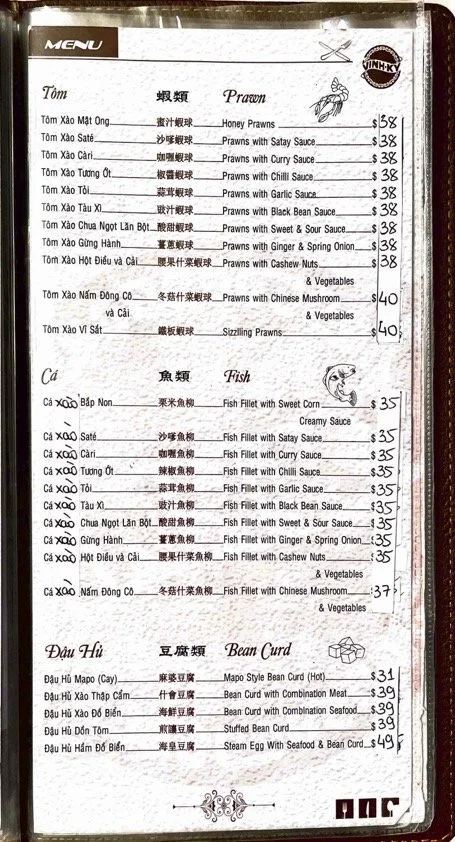 MENU
VINH-KY
Tôm 蝦類 Prawn
Tôm Xào Mật Ong 蜜汁蝦球 Honey Prawns $38
Tôm Xào Saté 沙嗲蝦球 Prawns with Satay Sauce $38
Tôm Xào Càri 咖喱蝦球 Prawns with Curry Sauce $38
Tôm Xào Tương Ớt 椒醬蝦球 Prawns with Chilli Sauce $38
Tôm Xào Tỏi 蒜茸蝦球 Prawns with Garlic Sauce $38
Tôm Xào Tàu Xì 豉汁蝦球 Prawns with Black Bean Sauce $38
Tôm Xào Chua Ngọt Lăn Bột 酸甜蝦球 Prawns with Sweet & Sour Sauce $38
Tôm Xào Gừng Hành 薑蔥蝦球 Prawns with Ginger & Spring Onion $38
Tôm Xào Hột Điều và Cải 腰果什菜蝦球 Prawns with Cashew Nuts $38
& Vegetables
Tôm Xào Nấm Đông Cô 冬菇什菜蝦球 Prawns with Chinese Mushroom $40
và Cải & Vegetables
Tôm Xào Vĩ Sắt 鐵板蝦球 Sizzlling Prawns $40
Cá 魚類 Fish
Cá xào Bắp Non 栗米魚柳 Fish Fillet with Sweet Corn $35
Creamy Sauce
Cá xào Saté 沙嗲魚柳 Fish Fillet with Satay Sauce $35
Cá xào Càri 咖喱魚柳 Fish Fillet with Curry Sauce $35
Cá xào Tương Ớt 辣椒魚柳 Fish Fillet with Chilli Sauce $35
Cá xào Tỏi 蒜茸魚柳 Fish Fillet with Garlic Sauce $35
Cá xào Tàu Xì 豉汁魚柳 Fish Fillet with Black Bean Sauce $35
Cá xào Chua Ngọt Lăn Bột 酸甜魚柳 Fish Fillet with Sweet & Sour Sauce $35
Cá xào Gừng Hành 薑蔥魚柳 Fish Fillet with Ginger & Spring Onion $35
Cá xào Hột Điều và Cải 腰果什菜魚柳 Fish Fillet with Cashew Nuts $35
& Vegetables
Cá xào Nấm Đông Cô 冬菇什菜魚柳 Fish Fillet with Chinese Mushroom $37
& Vegetables
Đậu Hủ 豆腐類 Bean Curd
Đậu Hủ Mapo (Cay) 麻婆豆腐 Mapo Style Bean Curd (Hot) $31
Đậu Hủ Xào Thập Cẩm 什會豆腐 Bean Curd with Combination Meat $39
Đậu Hủ Xào Đồ Biển 海鮮豆腐 Bean Curd with Combination Seafood $39
Đậu Hủ Dồn Tôm 煎釀豆腐 Stuffed Bean Curd $39
Đậu Hủ Hầm Đồ Biển 海皇豆腐 Steam Egg With Seafood & Bean Curd $49